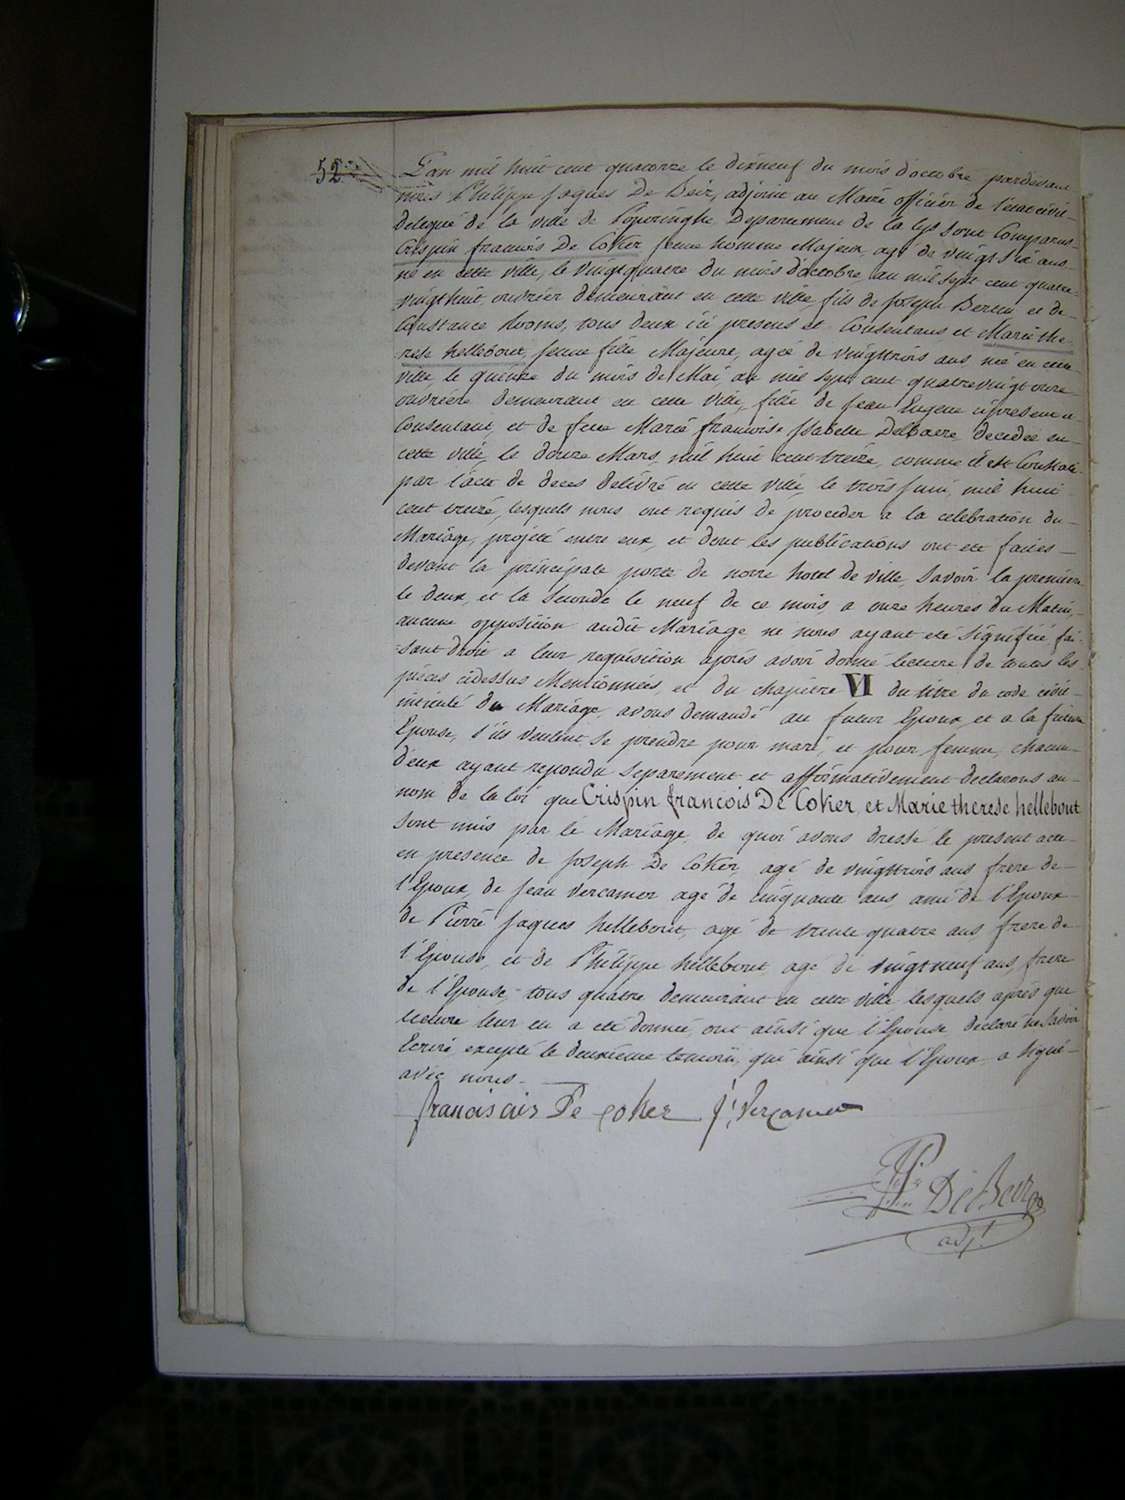 52
L'an mil huit cent quatorze le dixneuf du mois d'octobre pardevant
nous Philippe Jaques De Beir, adjoint au Maire officier de l'etat civil
delegué de la ville de Poperinghe Departement de la Lys sont Comparus
Crispin francois De Coker jeune homme Majeur, agé de vingt six ans
né en cette ville, le vingtquatre du mois d'octobre, an mil sept cent quatre
vingt huit, ouvrier demeurant en cette ville, fils de Joseph Bertin et de
Constance Rooms, tous deux ici presens et Consentans et Marie the
rese hellebout, jeune fille Majeure, agée de vingttrois ans née en cette
ville, le quinze du mois de Mai, an mil sept cent quatrevingt onze
ouvriere demeurant en cette ville, fille de Jean Eugene ci present et
Consentant, et de feue Marie francoise Isabelle Delbaere decedée en
cette ville le douze Mars, mil huit cent treize, comme il est Constaté
par l'acte de deces delivré en cette ville, le trois Juin, mil huit
cent treize, lesquels nous ont requis de proceder a la celebration du
Mariage, projeté entre eux, et dont les publications ont eté faites
devant la principale porte de notre hotel de ville, Savoir la premiere
le deux, et la Seconde le neuf de ce mois a onze heures du Matin,
aucune opposition audit Mariage ne nous ayant eté Signifiée, fai-
sant droit a leur requisition aprés avoir donné lecture de toutes les
piéces cidessus Mentionnées, et du chapitre VI du titre du code civil
intitulé du Mariage, avons demandé au futur Epoux et a la future
Epouse, s'ils veulent se prendre pour mari, et pour femme, chacun
d'eux ayant repondu separement et affirmativement declarons au
nom de la loi que Crispin francois De Coker, et Marie therese hellebout
sont unis par le Mariage, de quoi avons dressé le present acte
en presence de Joseph De Coker, agé de vingttrois ans frere de
l'Epoux de Jean Vercamer agé de cinquante ans ami de l'Epoux
de Pierre Jaques hellebout, agé de trente quatre ans, frere de
l'Epouse, et de Philippe hellebout agé de vingtneuf ans, frere
de l'Epouse, tous quatre demeurant en cette ville lesquels aprés que
lecture leur en a eté donnée, ont ainsi que l'Epouse declaré ne Savoir
Ecrire, excepté le deuxiéme temoin, qui ainsi que l'Epoux a Signé
avec nous.
De Coker J. Vercamer
De Beir
adj.t